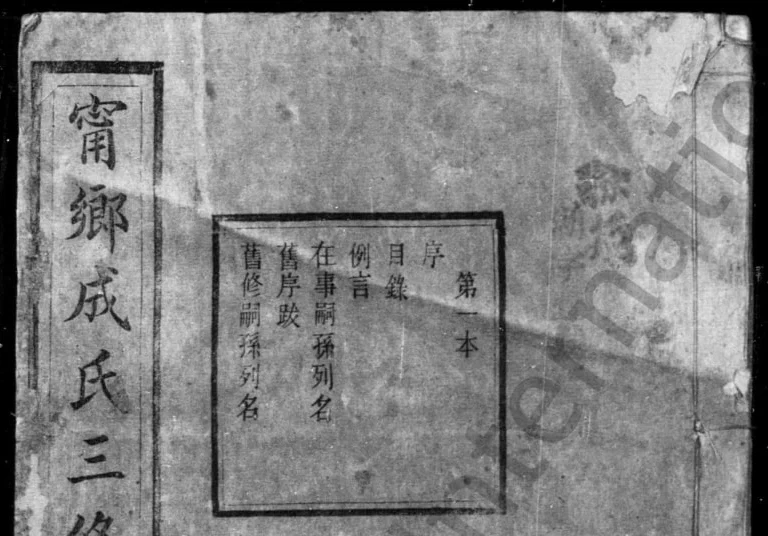 第一本
序
目錄
例言
在事嗣孫列名
舊序跋
舊修嗣孫列名
甯鄉成氏三